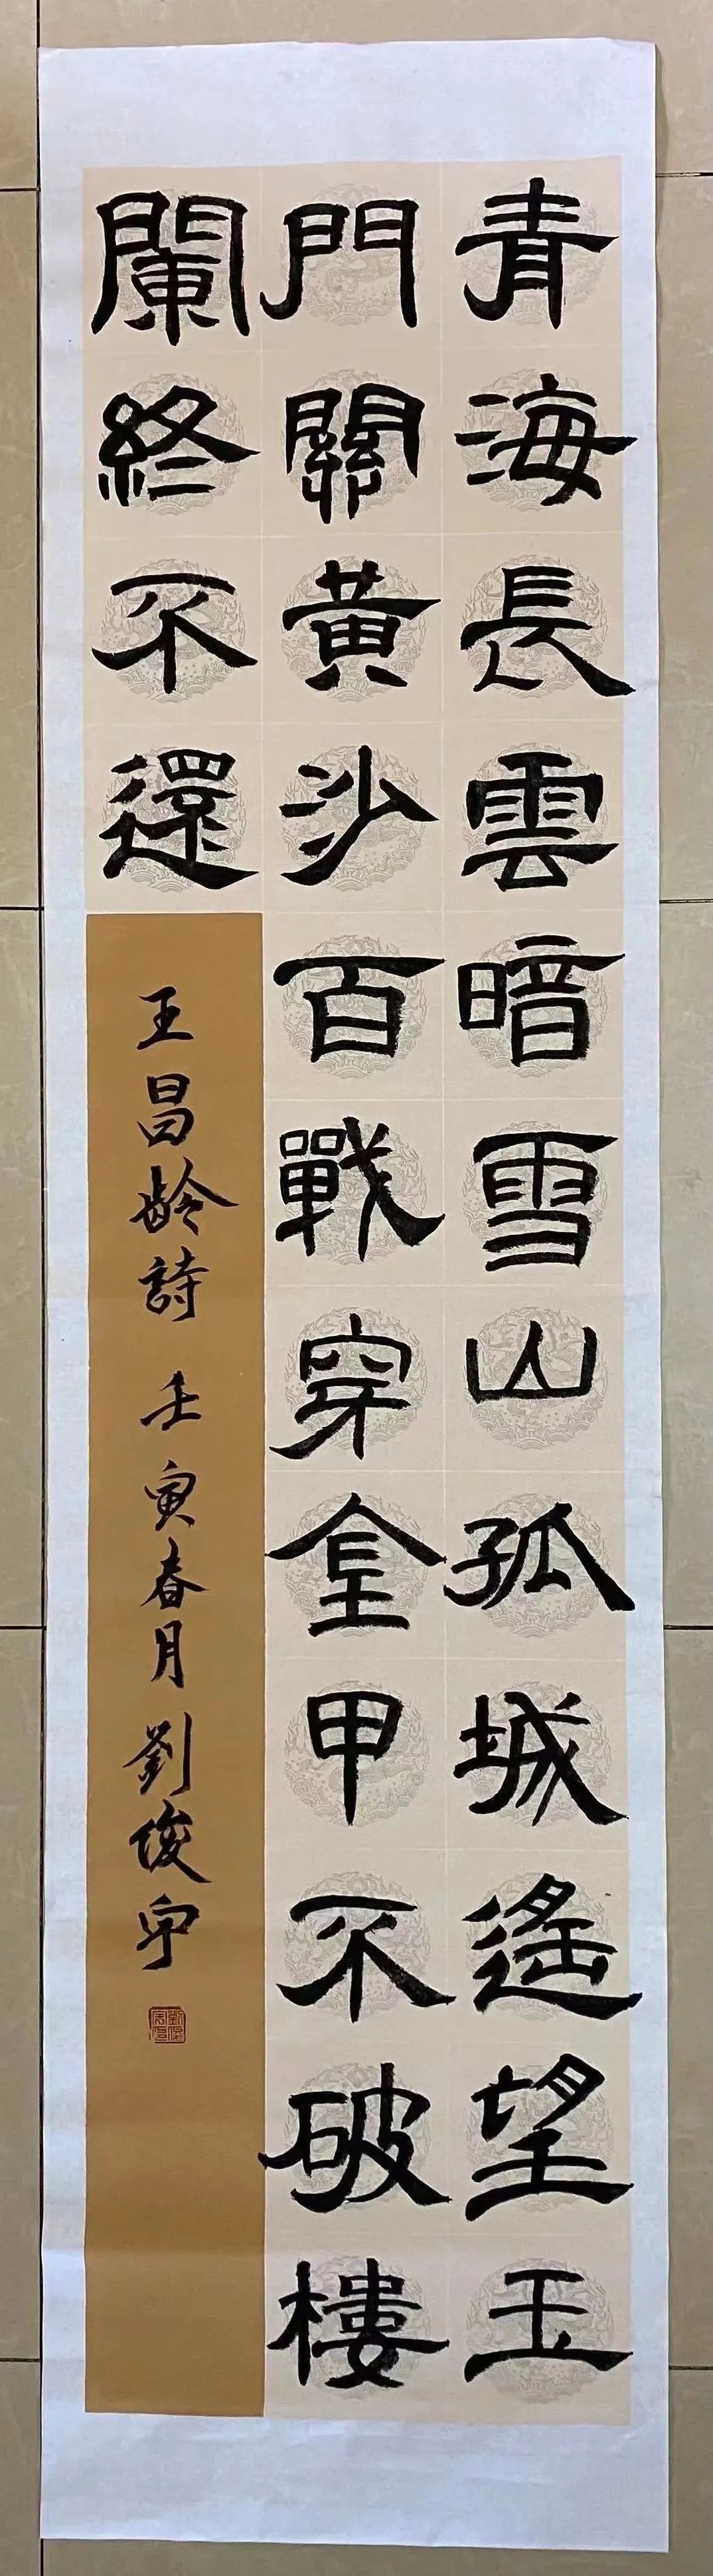 青海長雲暗雪山孤城遙望玉
門關黃沙百戰穿金甲不破樓
闌終不還
王昌齡詩 壬寅春月劉俊宇